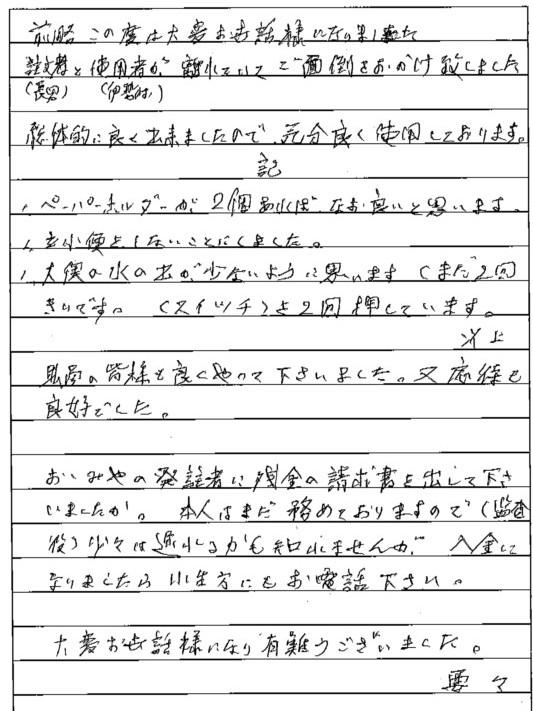 前略 この度は大変お世話様になりました
註文者と使用者が離れていてご面倒をおかけ致しました
(長男) (伊勢村)
総体的に良く出来ましたので、充分良く使用しております。
記
、ペーパーホルダーが2個あればなお良いと思います。
、立小便をしないことにしました。
、大僕の水の出が少ないように思います (まだ2回
きりです。 (スイッチ)を2回押しています。
以上
の皆様も良くやって下さいました。又応待も
良好でした。
おいみやの発註者に残金の請求書を出して下さ
いましたか。 本人はまだ務めておりますので(監査
役)少々は遅れるかも知れませんが 入金に
なりましたら小生方にもお電話下さい。
大変お世話様になり有難うございました。